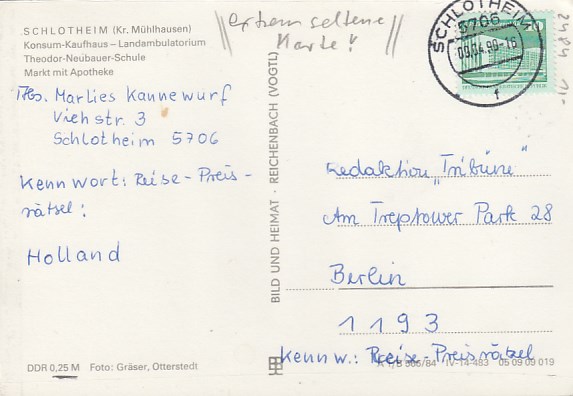 SCHLOTHEIM (Kr. Mühlhausen)
Konsum-Kaufhaus – Landambulatorium
Theodor-Neubauer-Schule
Markt mit Apotheke
extrem seltene
Karte!
SCHLOTHEIM
5706
09.04.90-16
f
20
2484
Abs. Marlies Kannewurf
Viehstr. 3
Schlotheim 5706
Kennwort: Reise-Preis-
rätsel:
Holland
BILD UND HEIMAT · REICHENBACH (VOGTL)
Redaktion „Tribüne"
Am Treptower Park 28
Berlin
1193
Kennw.: Reise-Preisrätsel
DDR 0,25 M Foto: Gräser, Otterstedt
IV-14-483 05 09 09 019